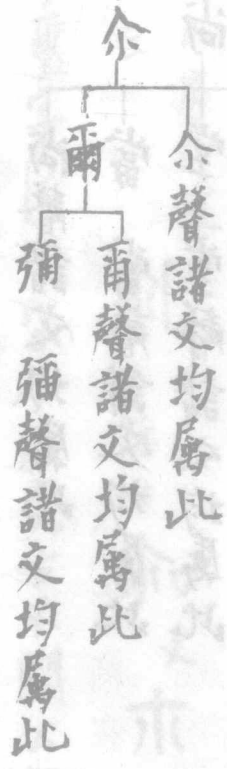 尒
尒聲諸文均屬此
爾
爾聲諸文均屬此
彌
彌聲諸文均屬此